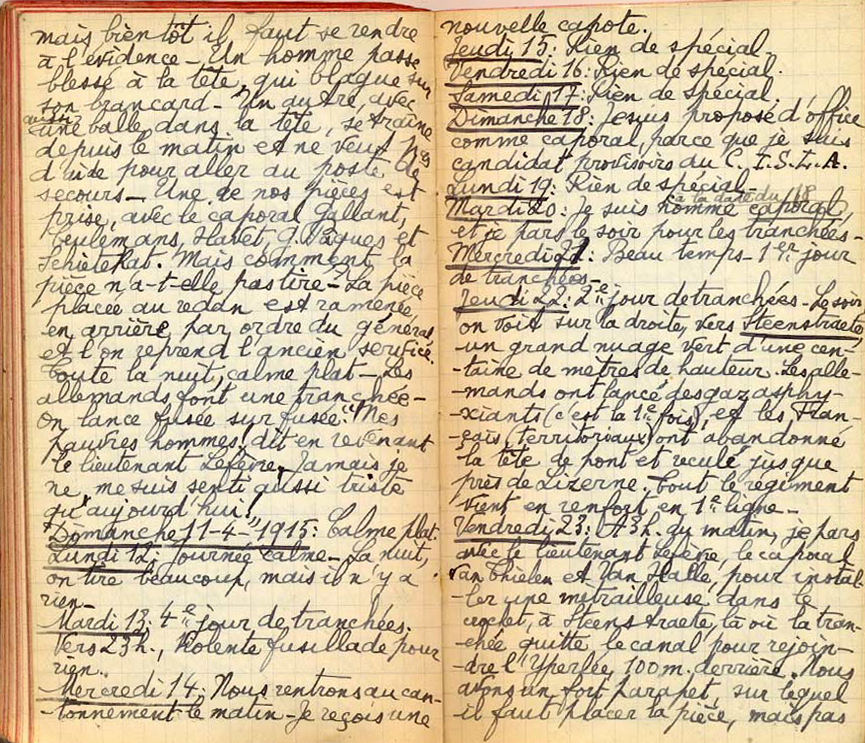 mais bientôt il faut se rendre
à l'évidence - Un homme passe
blessé à la tête, qui blague sur
son brancard - Un autre, avec
aussi
une balle dans la tête, se traîne
depuis le matin et ne veut pas
d'aide pour aller au poste de
secours - Une de nos pièces est
prise, avec le caporal Gallant,
Ceulemans, Havet, G. Pâques et
Schietekat. Mais comment la
pièce n'a-t-elle pas tiré - La pièce
placée au redan est ramenée,
en arrière par ordre du général
et l'on reprend l'ancien service.
Toute la nuit, calme plat - Les
allemands font une tranchée -
On lance fusée sur fusée. "Mes
pauvres hommes, dit en revenant
le lieutenant Lefèvre, Jamais je
ne me suis senti aussi triste
qu'aujourd'hui!"
Dimanche 11-4-1915: Calme plat.
Lundi 12: Journée calme - La nuit,
on tire beaucoup, mais il n'y a
rien -
Mardi 13: 4e jour de tranchées.
Vers 23h., violente fusillade pour
rien.
Mercredi 14: Nous rentrons au can-
-tonnement le matin - Je reçois une
nouvelle capote.
Jeudi 15: Rien de spécial -
Vendredi 16: Rien de spécial.
Samedi 17: Rien de spécial.
Dimanche 18: Je suis proposé d'office
comme caporal, parce que je suis
candidat provisoire au C. I. S. L. A.
Lundi 19: Rien de spécial -
à la date du 18
Mardi 20: Je suis nommé caporal,
et je pars le soir pour les tranchées -
Mercredi 21: Beau temps - 1er jour
de tranchées -
Jeudi 22: 2e jour de tranchées - Le soir
on voit sur la droite, vers Steenstraete,
un grand nuage vert d'une cen-
-taine de mètres de hauteur. Les alle-
-mands ont lancé des gaz asphy-
-xiants (c'est la 1e fois), et les Fran-
-çais (territoriaux) ont abandonné
la tête de pont et reculé jusque
près de Lizerne. Tout le régiment
vient en renfort en 1e ligne -
Vendredi 23: A 3h. du matin, je pars
avec le lieutenant Lefèvre, le caporal
Van Thielen et Van Halle, pour instal-
-ler une mitrailleuse dans le
crochet, à Steenstraete, là où la tran-
-chée quitte le canal pour rejoin-
-dre l'Yperlée, 100 m. derrière. Nous
avons un fort parapet, sur lequel
il faut placer la pièce, mais pas